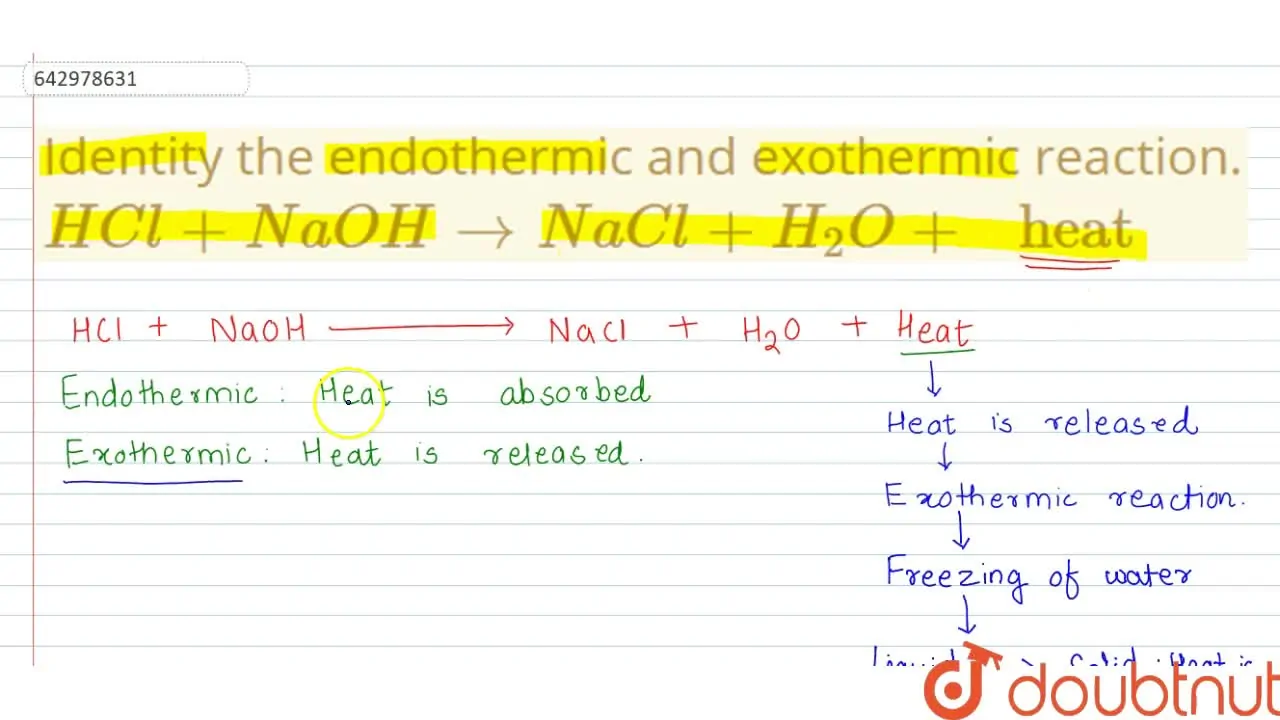 642978631
Identity the endothermic and exothermic reaction.
HCl + NaOH → NaCl + H₂O + heat
HCl + NaOH → NaCl + H₂O + Heat
Endothermic : Heat is absorbed
Exothermic : Heat is released.
↓
Heat is released
↓
Exothermic reaction.
↓
Freezing of water
↓
Liquid → Solid : Heat is
doubtnut